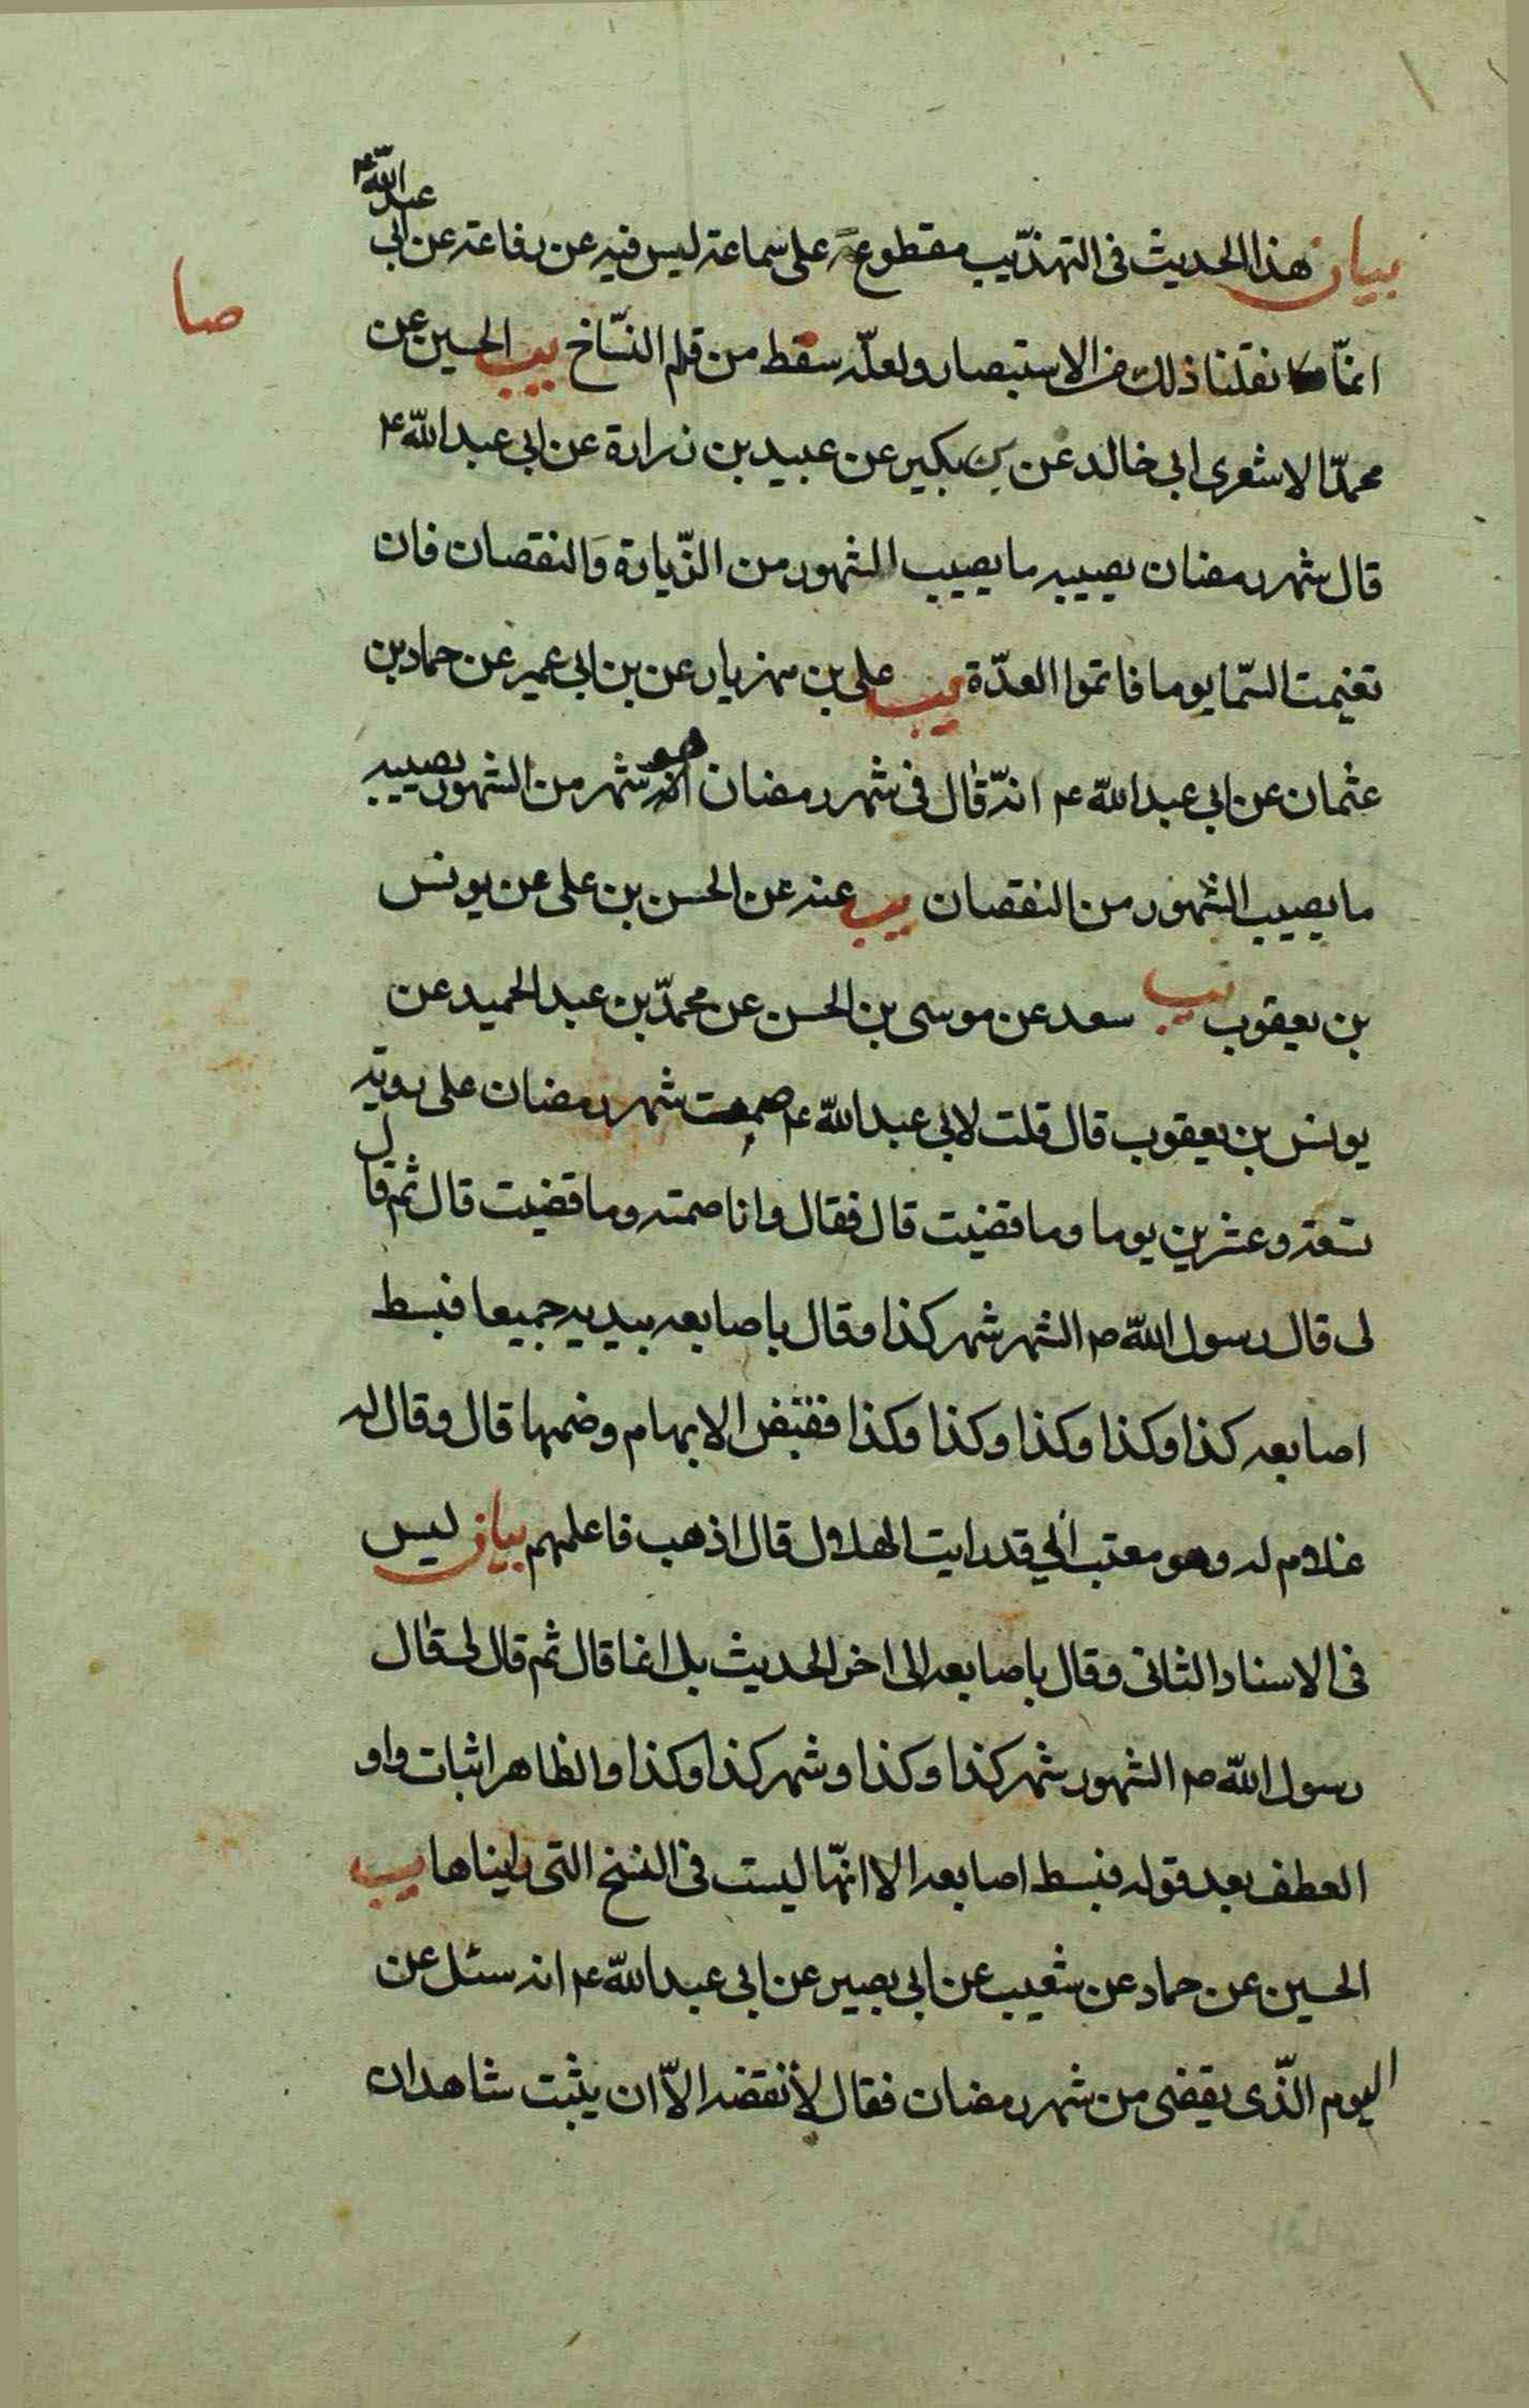 بيان هذا الحديث فى التهذيب مقطوعة على سماعة ليس فيه عن رفاعة عن ابى عبد الله ع
انما نقلنا ذلك من الاستبصار ولعله سقط من قلم النساخ يب الحسين عن
صا
محمد الاشعرى ابى خالد عن بن بكير عن عبيد بن زرارة عن ابى عبد الله ع
قال شهر رمضان يصيبه ما يصيب الشهور من الزيادة والنقصان فان
تغيمت السما يوما فاتموا العدة يب على بن مهزيار عن بن ابى عمير عن حماد بن
عثمان عن ابى عبد الله ع انه قال فى شهر رمضان هو شهر من الشهور يصيبه
ما يصيب الشهور من النقصان يب عنه عن الحسن بن على عن يونس
بن يعقوب يب سعد عن موسى بن الحسن عن محمد بن عبد الحميد عن
يونس بن يعقوب قال قلت لابى عبد الله ع صمت شهر رمضان على رويه
تسعة وعشرين يوما وما قضيت قال فقال وانا صمته وما قضيت قال ثم قال
لى قال رسول الله ص الشهر شهر كذا وقال باصابعه بيديه جميعا فبسط
اصابعه كذا وكذا وكذا وكذا وكذا فقبض الابهام وضمها قال وقال له
غلام له وهو معتب انى قد رايت الهلال قال اذهب فاعلمهم بيان ليس
فى الاسناد الثانى وقال باصابعه الى اخر الحديث بل انما قال ثم قال لى قال
رسول الله ص الشهور شهر كذا وكذا وشهر كذا وكذا والظاهر اثبات واو
العطف بعد قوله فبسط اصابعه الا انها ليست فى النسخ التى رايناها يب
الحسين عن حماد عن شعيب عن ابى بصير عن ابى عبد الله ع انه سئل عن
اليوم الذى يقضى من شهر رمضان فقال لا تقضه الا ان يثبت شاهدان